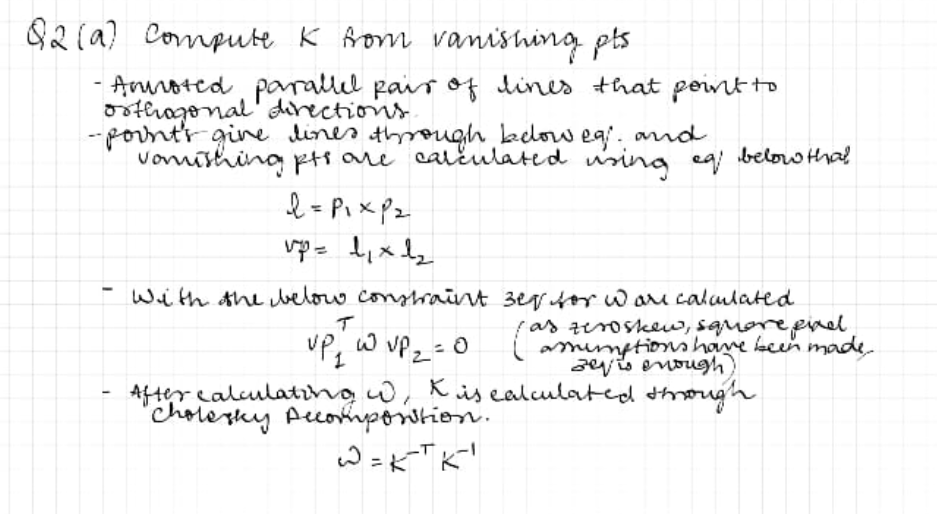 Q2 (a) Compute K from vanishing pts
- Annoted parallel pair of lines that point to
orthogonal directions.
- points give lines through below eq. and
vanishing pts are calculated using eq below that
l = P₁ × P₂
vp = l₁ × l₂
- With the below constraint 3eq for ω are calculated
vp₁ᵀ ω vp₂ = 0 (as zero skew, square pixel
assumptions have been made,
3eq is enough)
- After calculating ω, K is calculated through
Cholesky Decomposition.
ω = K⁻ᵀ K⁻¹